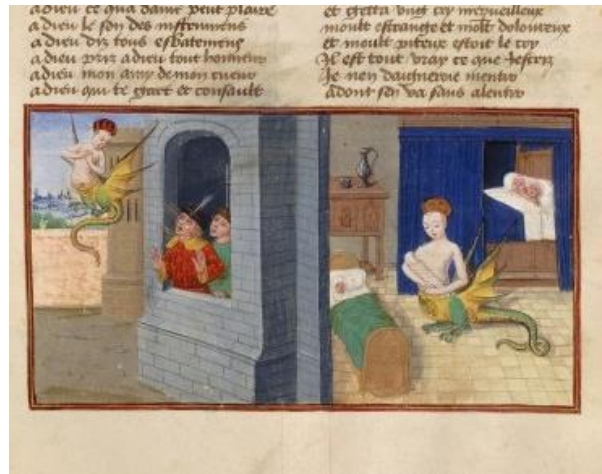 adieu ce qua dame peut plaire
adieu le son des instrumens
adieu diz tous esbatemens
adieu priz adieu tout honneur
adieu mon amy de mon cueur
adieu qui te gart et consault
et gretta ung cry merveilleux
moult estrange et moult doloureux
et moult piteux estoit le cry
Il est tout vray ce que Jescriz
Je nen daigneroie mentir
adont sen va sans alentir